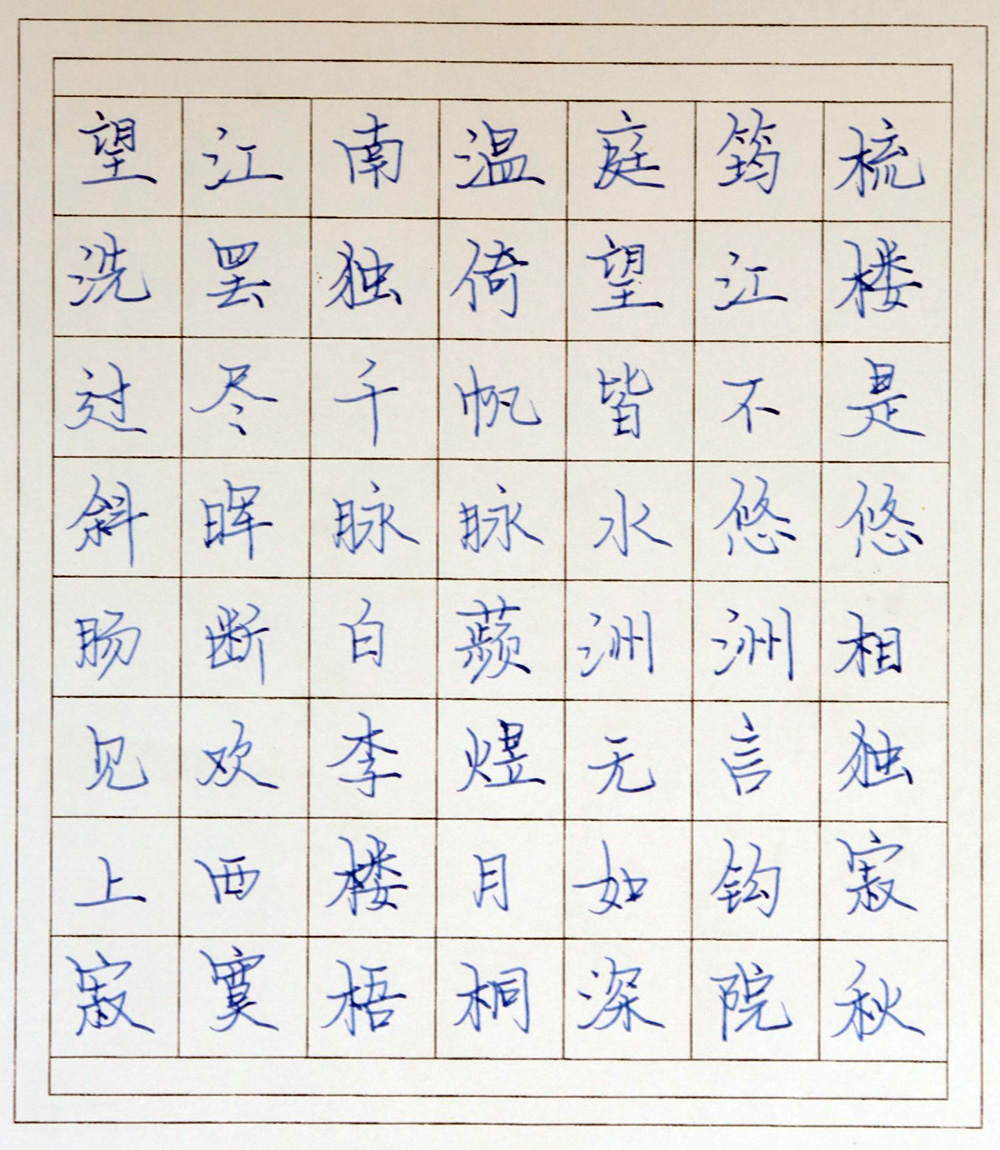 望江南温庭筠梳
洗罢独倚望江楼
过尽千帆皆不是
斜晖脉脉水悠悠
肠断白蘋洲洲相
见欢李煜无言独
上西楼月如钩寂
寂寞梧桐深院秋